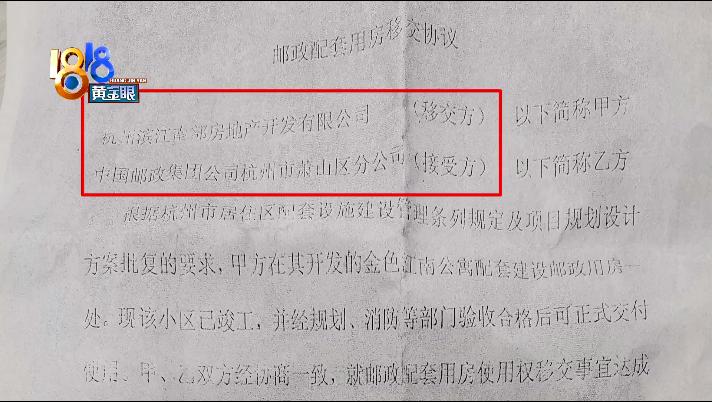 1818
HUANG JIN YAN
黄金眼
邮政配套用房移交协议
杭州滨江南部房地产开发有限公司 （移交方） 以下简称甲方
中国邮政集团公司杭州市萧山区分公司（接受方） 以下简称乙方
根据杭州市居住区配套设施建设管理条例规定及项目规划设计
方案批复的要求，甲方在其开发的金色江南公寓配套建设邮政用房一
处。现该小区已竣工，并经规划、消防等部门验收合格后可正式交付
使用。甲、乙双方经协商一致，就邮政配套用房使用权移交事宜达成